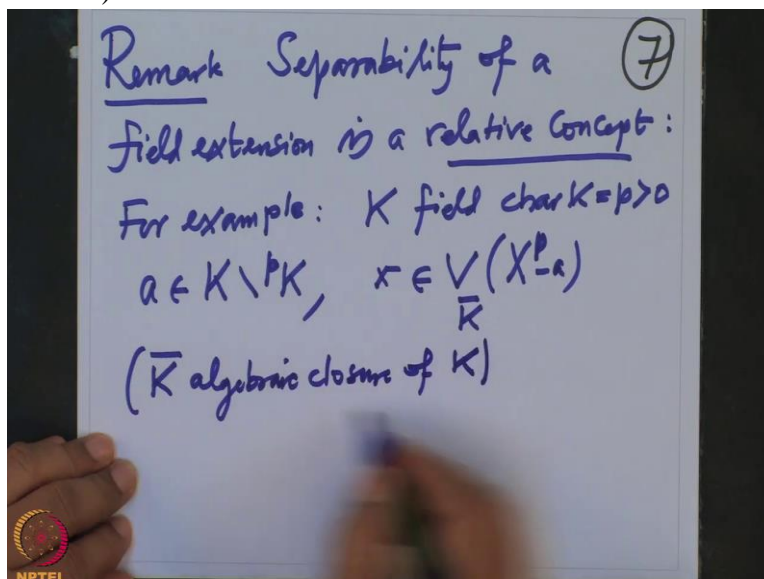 Remark Separability of a 7
field extension is a relative concept:
For example: K field char K = p > 0
a ∈ K \ ᵖK, x ∈ V_K̄ (Xᵖ - a)
(K̄ algebraic closure of K)
NPTEL